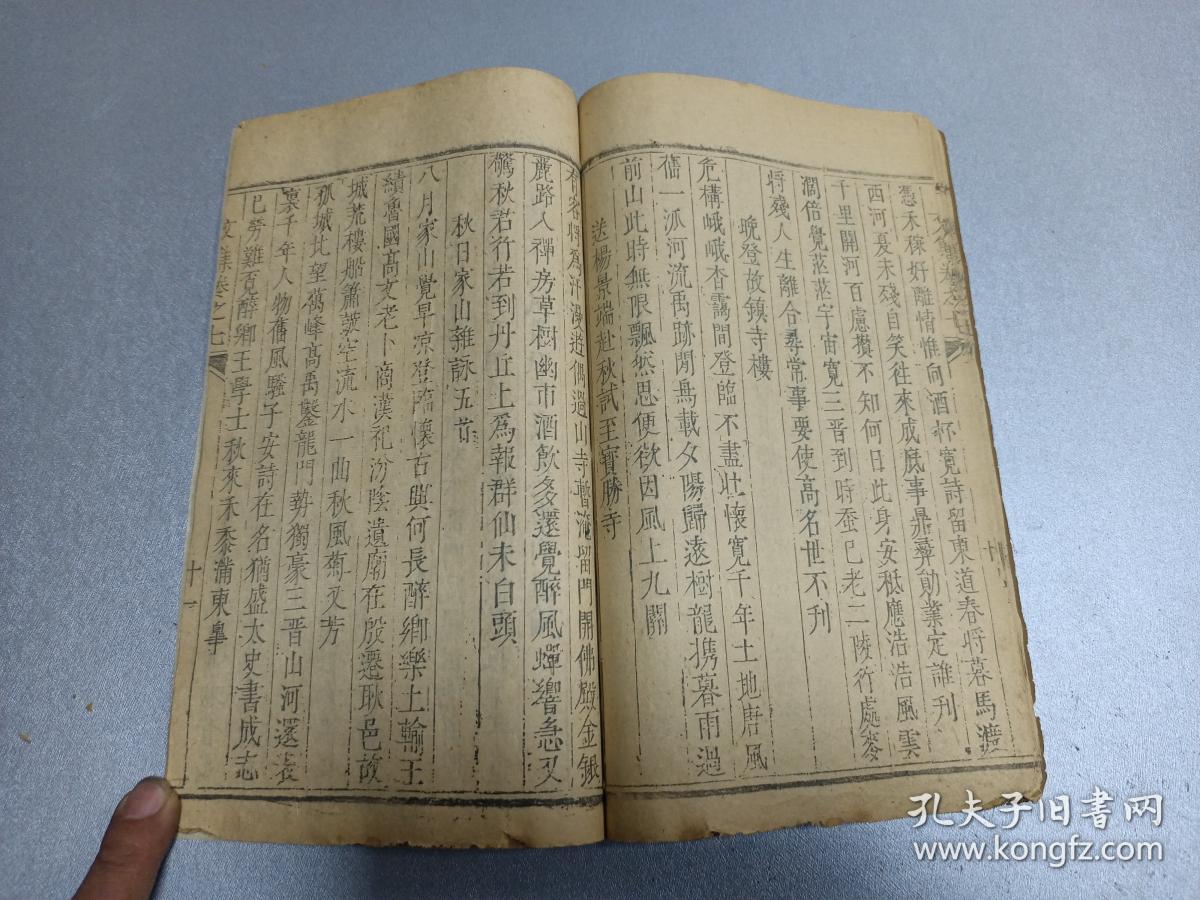 憑禾稼好離情惟向酒杯寬詩留東道春將暮馬渡
西河夏未殘自笑往來成底事鼎彝勛業定誰刋
千里開河百慮攢不知何日此身安秪應浩浩風雲
濶倍覺茫茫宇宙寬三晉到時蚕已老二陵行處麥
將殘人生離合尋常事要使高名世不刋
晚登故鎮寺樓
危構峨峨杳靄間登臨不盡壯懷寬千年土地唐風
舊一派河流禹跡閒鳥載夕陽歸遠樹龍携暮雨過
前山此時無限飄然思便欲因風上九關
送楊景端赴秋試至寶勝寺
漫遊偶過山寺暫淹留門開佛殿金銀
麗路入禪房草樹幽市酒飲多還覺醉風蟬響急又
驚秋君行若到丹丘上爲報群仙未白頭
秋日家山雜詠五首
八月家山覺早凉登臨懷古興何長醉鄉樂土輸王
績魯國高文老卜商漢祀汾陰遺廟在殷遷耿邑故
城荒樓船簫鼓空流水一曲秋風菊又芳
孤城北望萬峰高禹鑿龍門勢獨豪三晉山河還表
裏千年人物舊風騷子安詩在名猶盛太史書成志
已勞難覓醉鄉王學士秋來禾黍滿東皋
文集卷之七
十一
孔夫子旧书网
www.kongfz.com